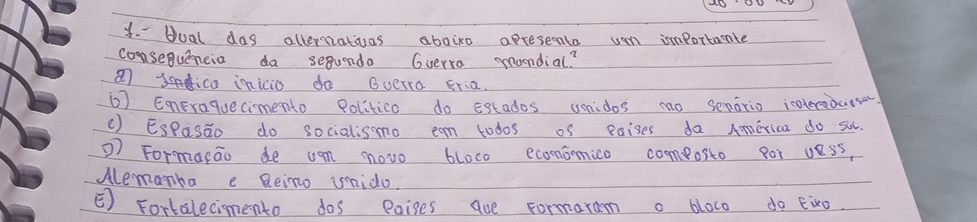 1.- Qual das alternativas abaixo apresenta um importante
consequência da segunda Guerra mundial?
a) início da Guerra Fria.
b) Enfraquecimento Político do Estados unidos no senário internacional
c) Espasão do socialismo em todos os Países da América do sul.
D) Formação de um novo bloco econômico composto Por URSS,
Alemanha e Reino Unido.
E) Fortalecimento dos Países que Formaram o bloco do Eixo